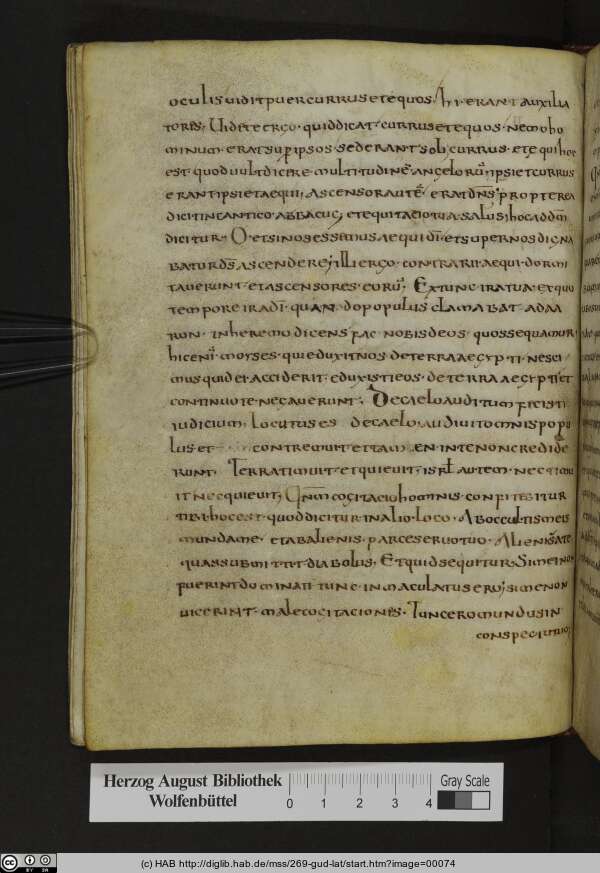 oculis uidit puer currus et equos. hi erant auxilia
tores; Uidete ergo. quid dicat currus et equos. nemo ho
minum erat super ipsos. sed erant soli currus. et equi hoc
est quod uult dicere multitudinē angelorū. ipsi et currus
erant ipsi et aequi; Ascensor autē erat dn̄s. propterea
dicit in cantico abbacuc; et equitacio tua salus; hoc ad dm̄
dicitur. O et si nos essemus aequi dī. et super nos digna
batur dn̄s ascendere; Illi ergo contrarii aequi dormi
tauerunt. et ascensores eorū; Ex tunc ira tua. ex quo
tempore ira dī. quando populus clamabat ad aa
ron. in heremo dicens fac nobis deos. quos sequamur
hic enī moyses. qui eduxit nos de terra aegypti. nesci
mus quid ei acciderit. eduxisti eos. de terra aegypti et
continuo te negauerunt; De caelo auditum fecisti
iudicium. locutus es de caelo. audiuit omnis popu
lus et contremuit et tamen in te non credide
runt. Terra timuit et quieuit. isrl autem. nec timu
it nec quieuit; Qnm cogitacio hominis confitebitur
tibi. hoc est quod dicitur in alio loco. Ab occultis meis
munda me. et ab alienis parce seruo tuo. Alienis a te
quas submittit diabolus; Et quid sequitur. Si mei non
fuerint dominati tunc inmaculatus ero; si me non
uicerint malae cogitaciones. Tunc ero mundus in
conspectu tuo;
Herzog August Bibliothek
Wolfenbüttel
0 1 2 3 4
Gray Scale
(c) HAB http://diglib.hab.de/mss/269-gud-lat/start.htm?image=00074